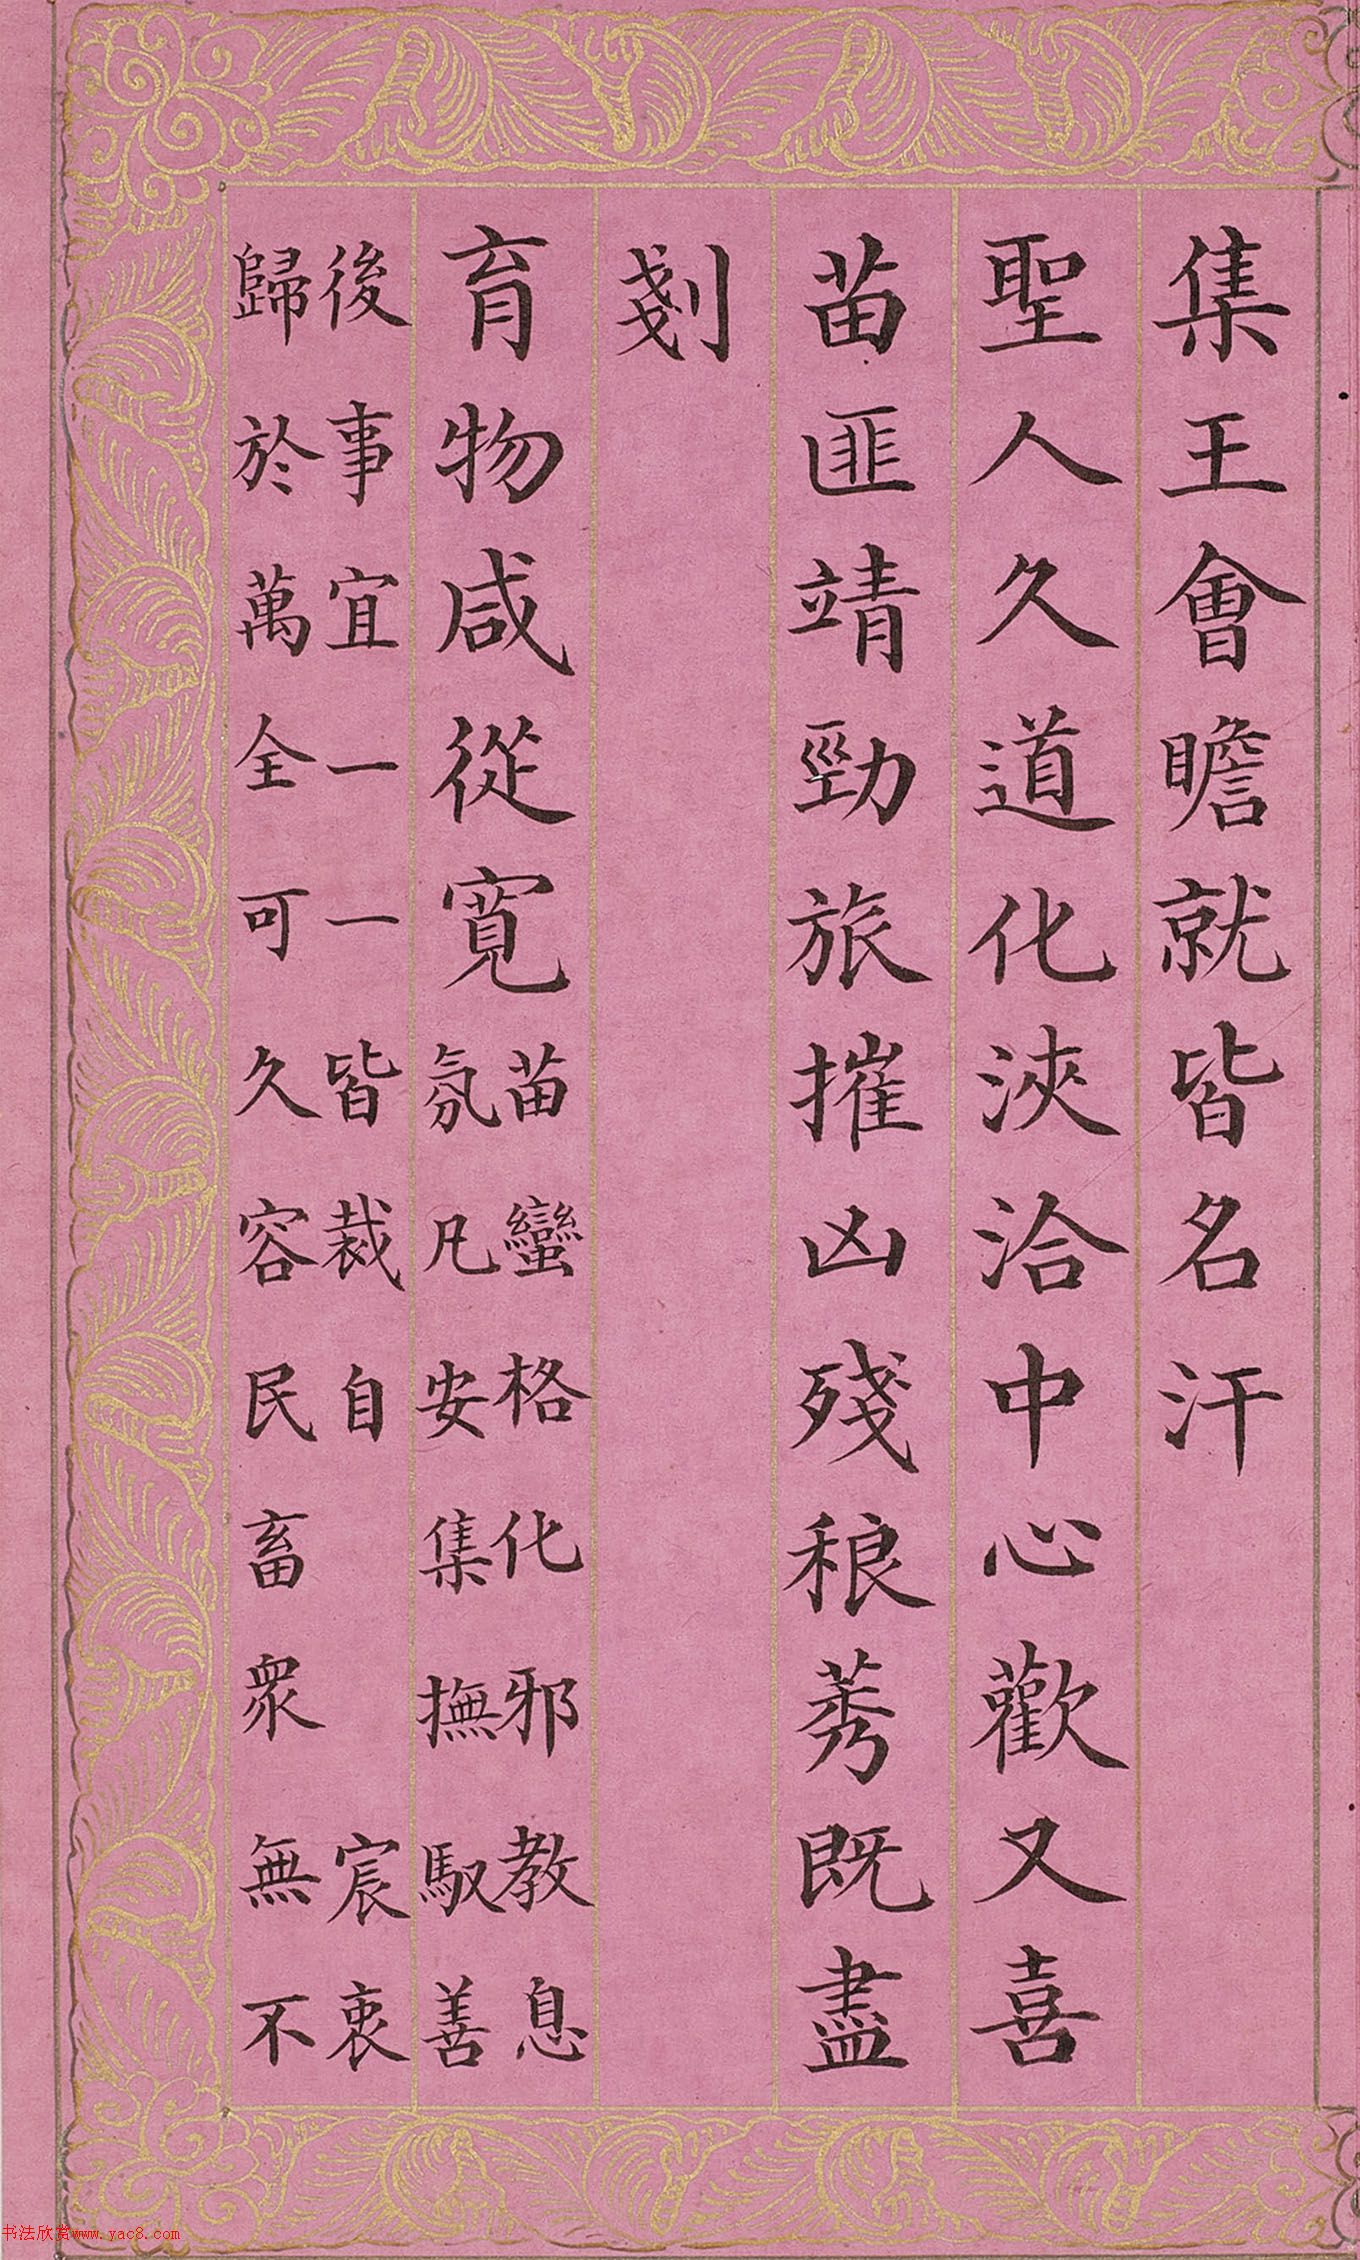 集王會瞻就皆名汗
聖人久道化浹洽中心歡又喜
苗匪靖勁旅摧凶殘稂莠既盡
剗
育物咸從寬
苗蠻格化邪教息
氛凡安集撫馭善
後事宜一一皆裁自
宸衷
歸於萬全可久容民畜衆無不
书法欣赏www.yac8.com